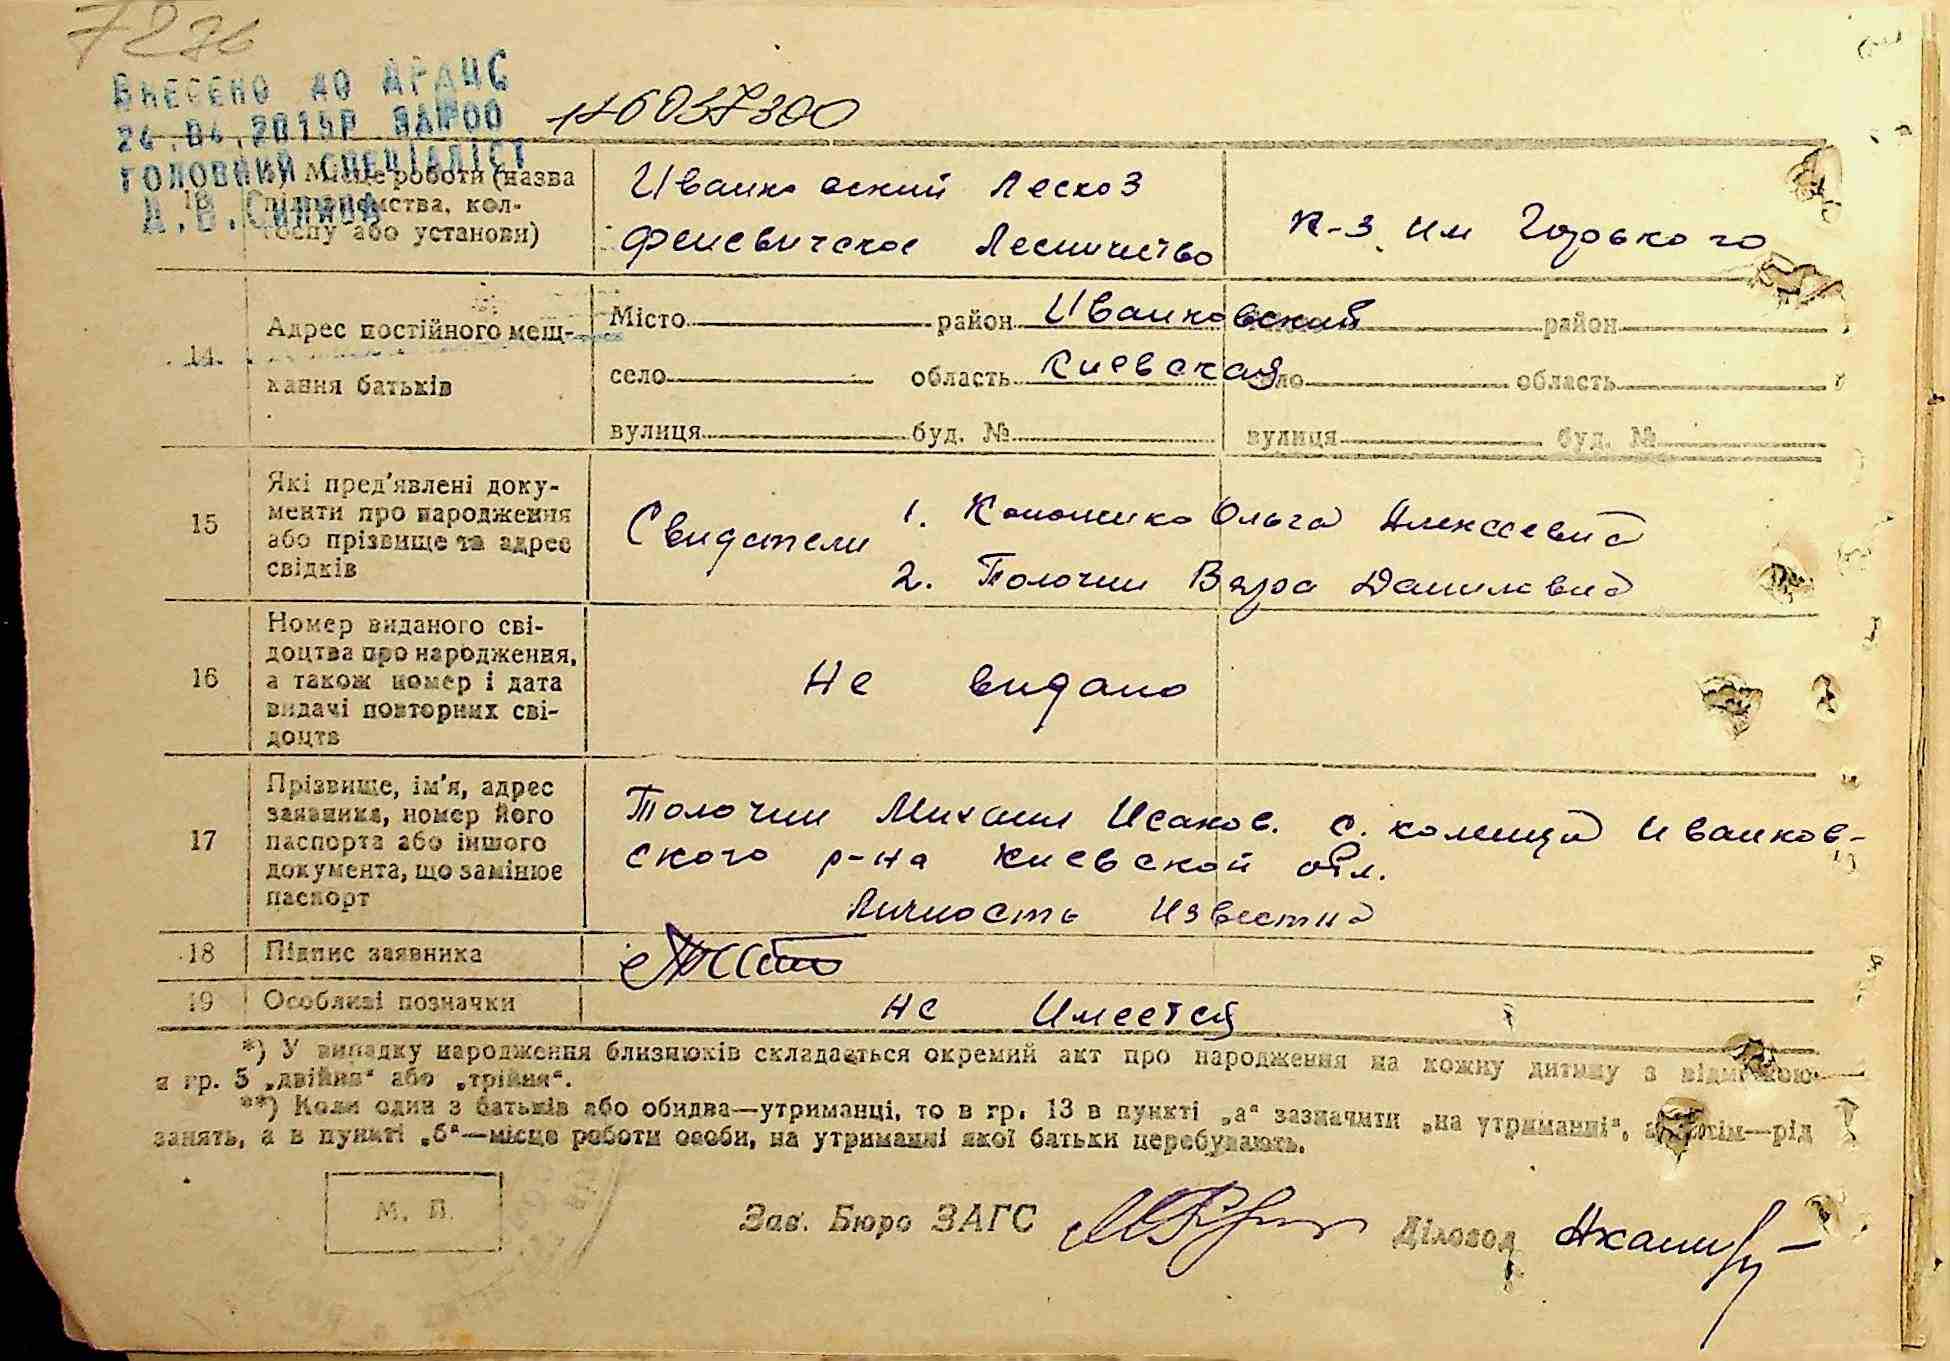 7236
ВНЕСЕНО ДО ДРАЦС
24.04.2015Р
ГОЛОВНИЙ СПЕЦІАЛІСТ
Місце роботи (назва
підприємства, кол-
госпу або установи)
Иванковский Лесхоз
Феневическое Лесничество
к-з им Горького
14.
Адрес постійного меш-
кання батьків
Місто район Иванковский район
село область Киевская село область
вулиця буд. № вулиця буд. №
15
Які пред'явлені доку-
менти про народження
або прізвище та адрес
свідків
Свидетели
1. Ольга Алексеевна
2. Толочин Вера Даниловна
16
Номер виданого сві-
доцтва про народження,
а також номер і дата
видачі повторних сві-
доцтв
Не видано
17
Прізвище, ім'я, адрес
заявника, номер його
паспорта або іншого
документа, що замінює
паспорт
Толочин Михаил Исаков. с. Коленцы Иванков-
ского р-на Киевской обл.
Личность известна
18
Підпис заявника
19
Особливі позначки
не имеется
*) У випадку народження близнюків складається окремий акт про народження на кожну дитину з відміткою
в гр. 5 „двійня“ або „трійня“.
**) Коли один з батьків або обидва—утриманці, то в гр. 13 в пункті „а“ зазначити „на утриманні“, а потім—рід
занять, а в пункті „б“—місце роботи особи, на утриманні якої батьки перебувають.
М. П.
Зав. Бюро ЗАГС
Діловод